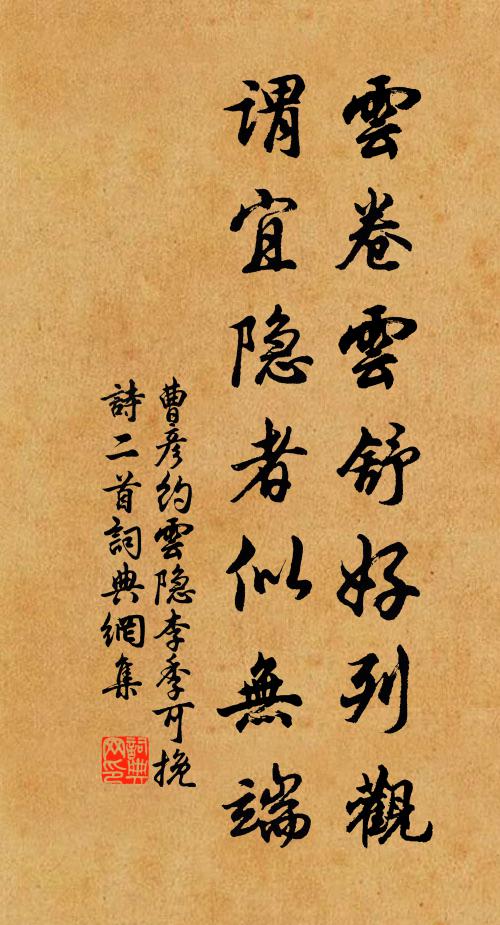 雲卷雲舒好列觀
謂宜隐者似無端
曹彦约雲隐李季可挽
詩二首詞典網集
詞典
网印